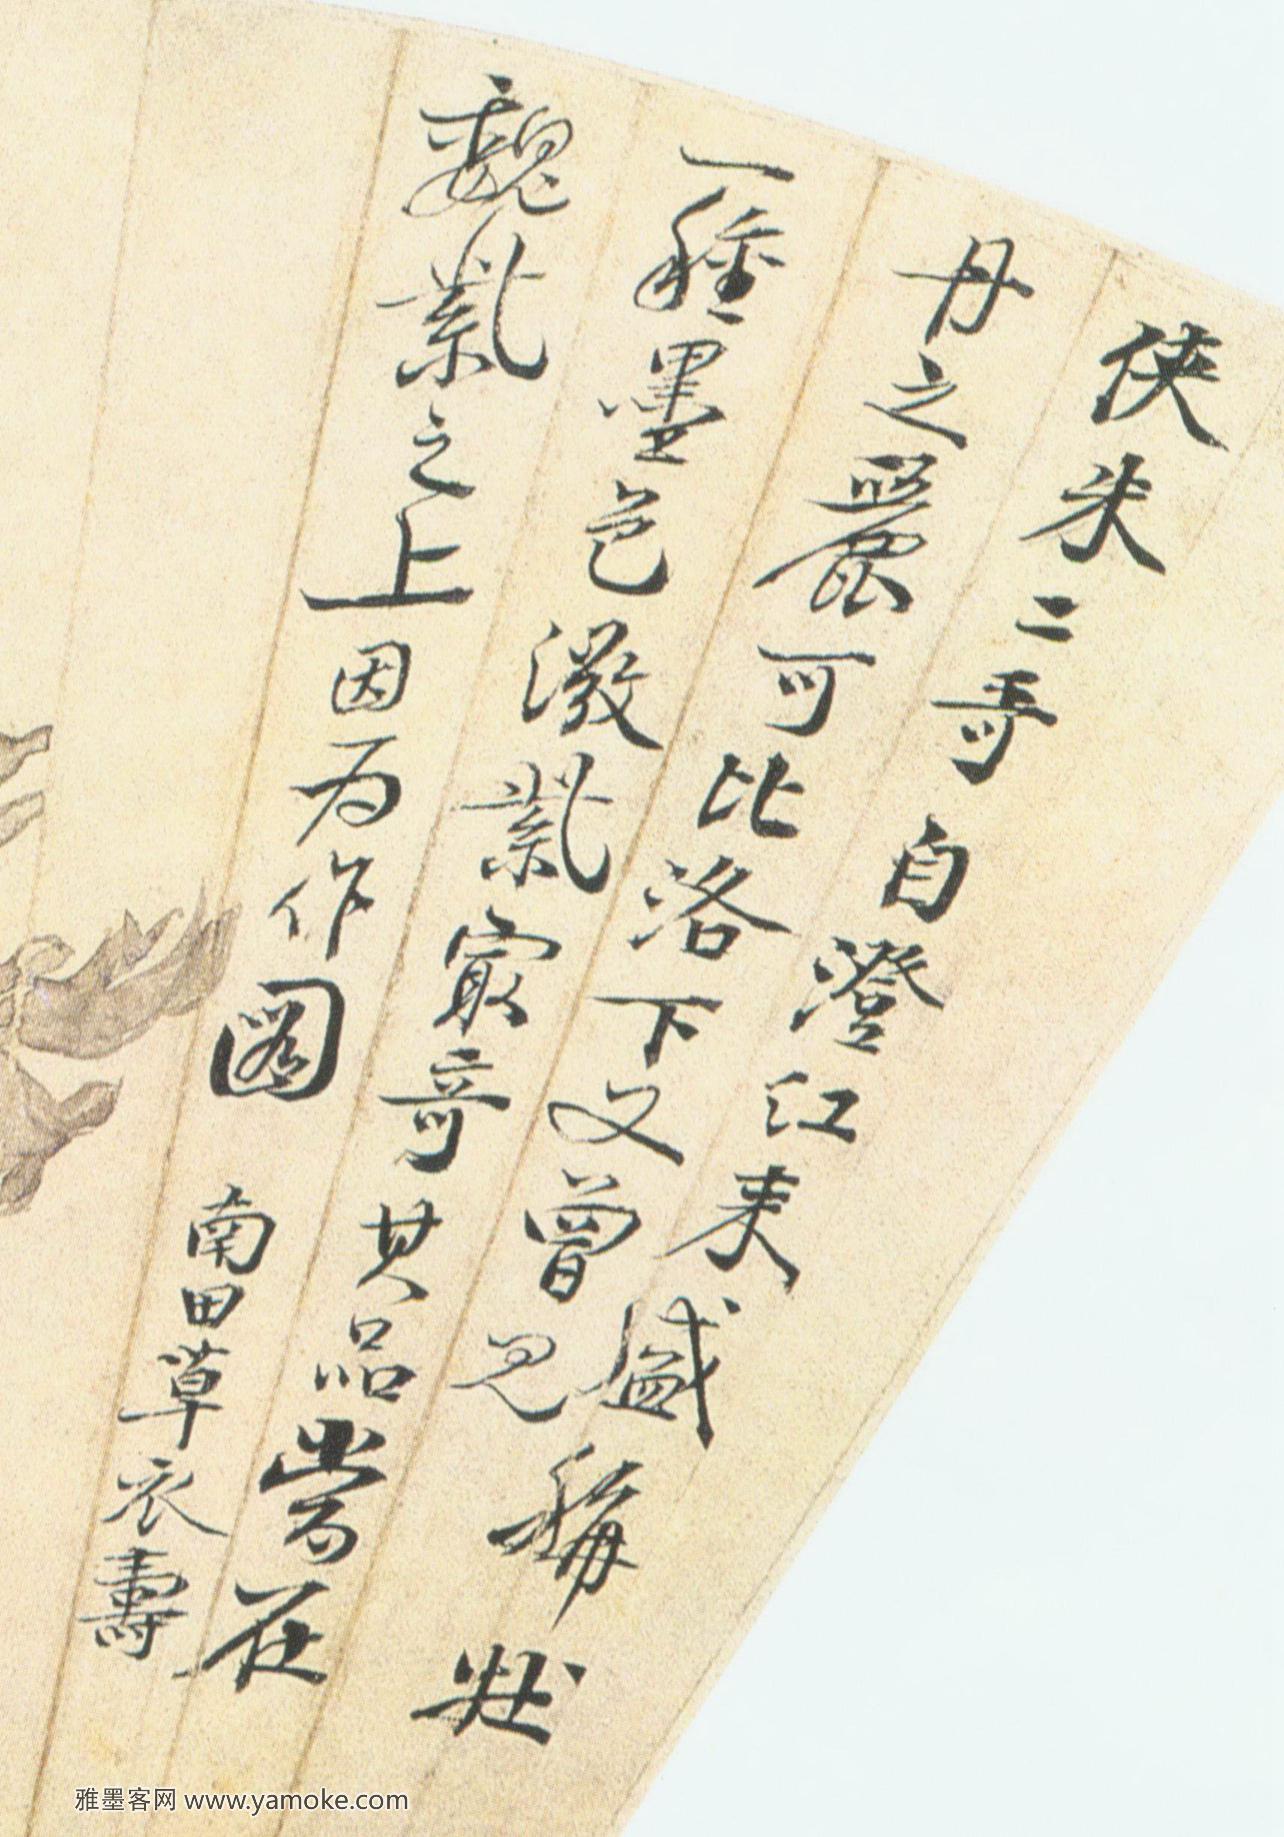 侠朱二哥自澄江来盛稱牡
丹之麗可比洛下又曾見
一種墨色潑紫最奇其品當在
魏紫之上因為作圖 南田草衣壽
雅墨客网 www.yamoke.com